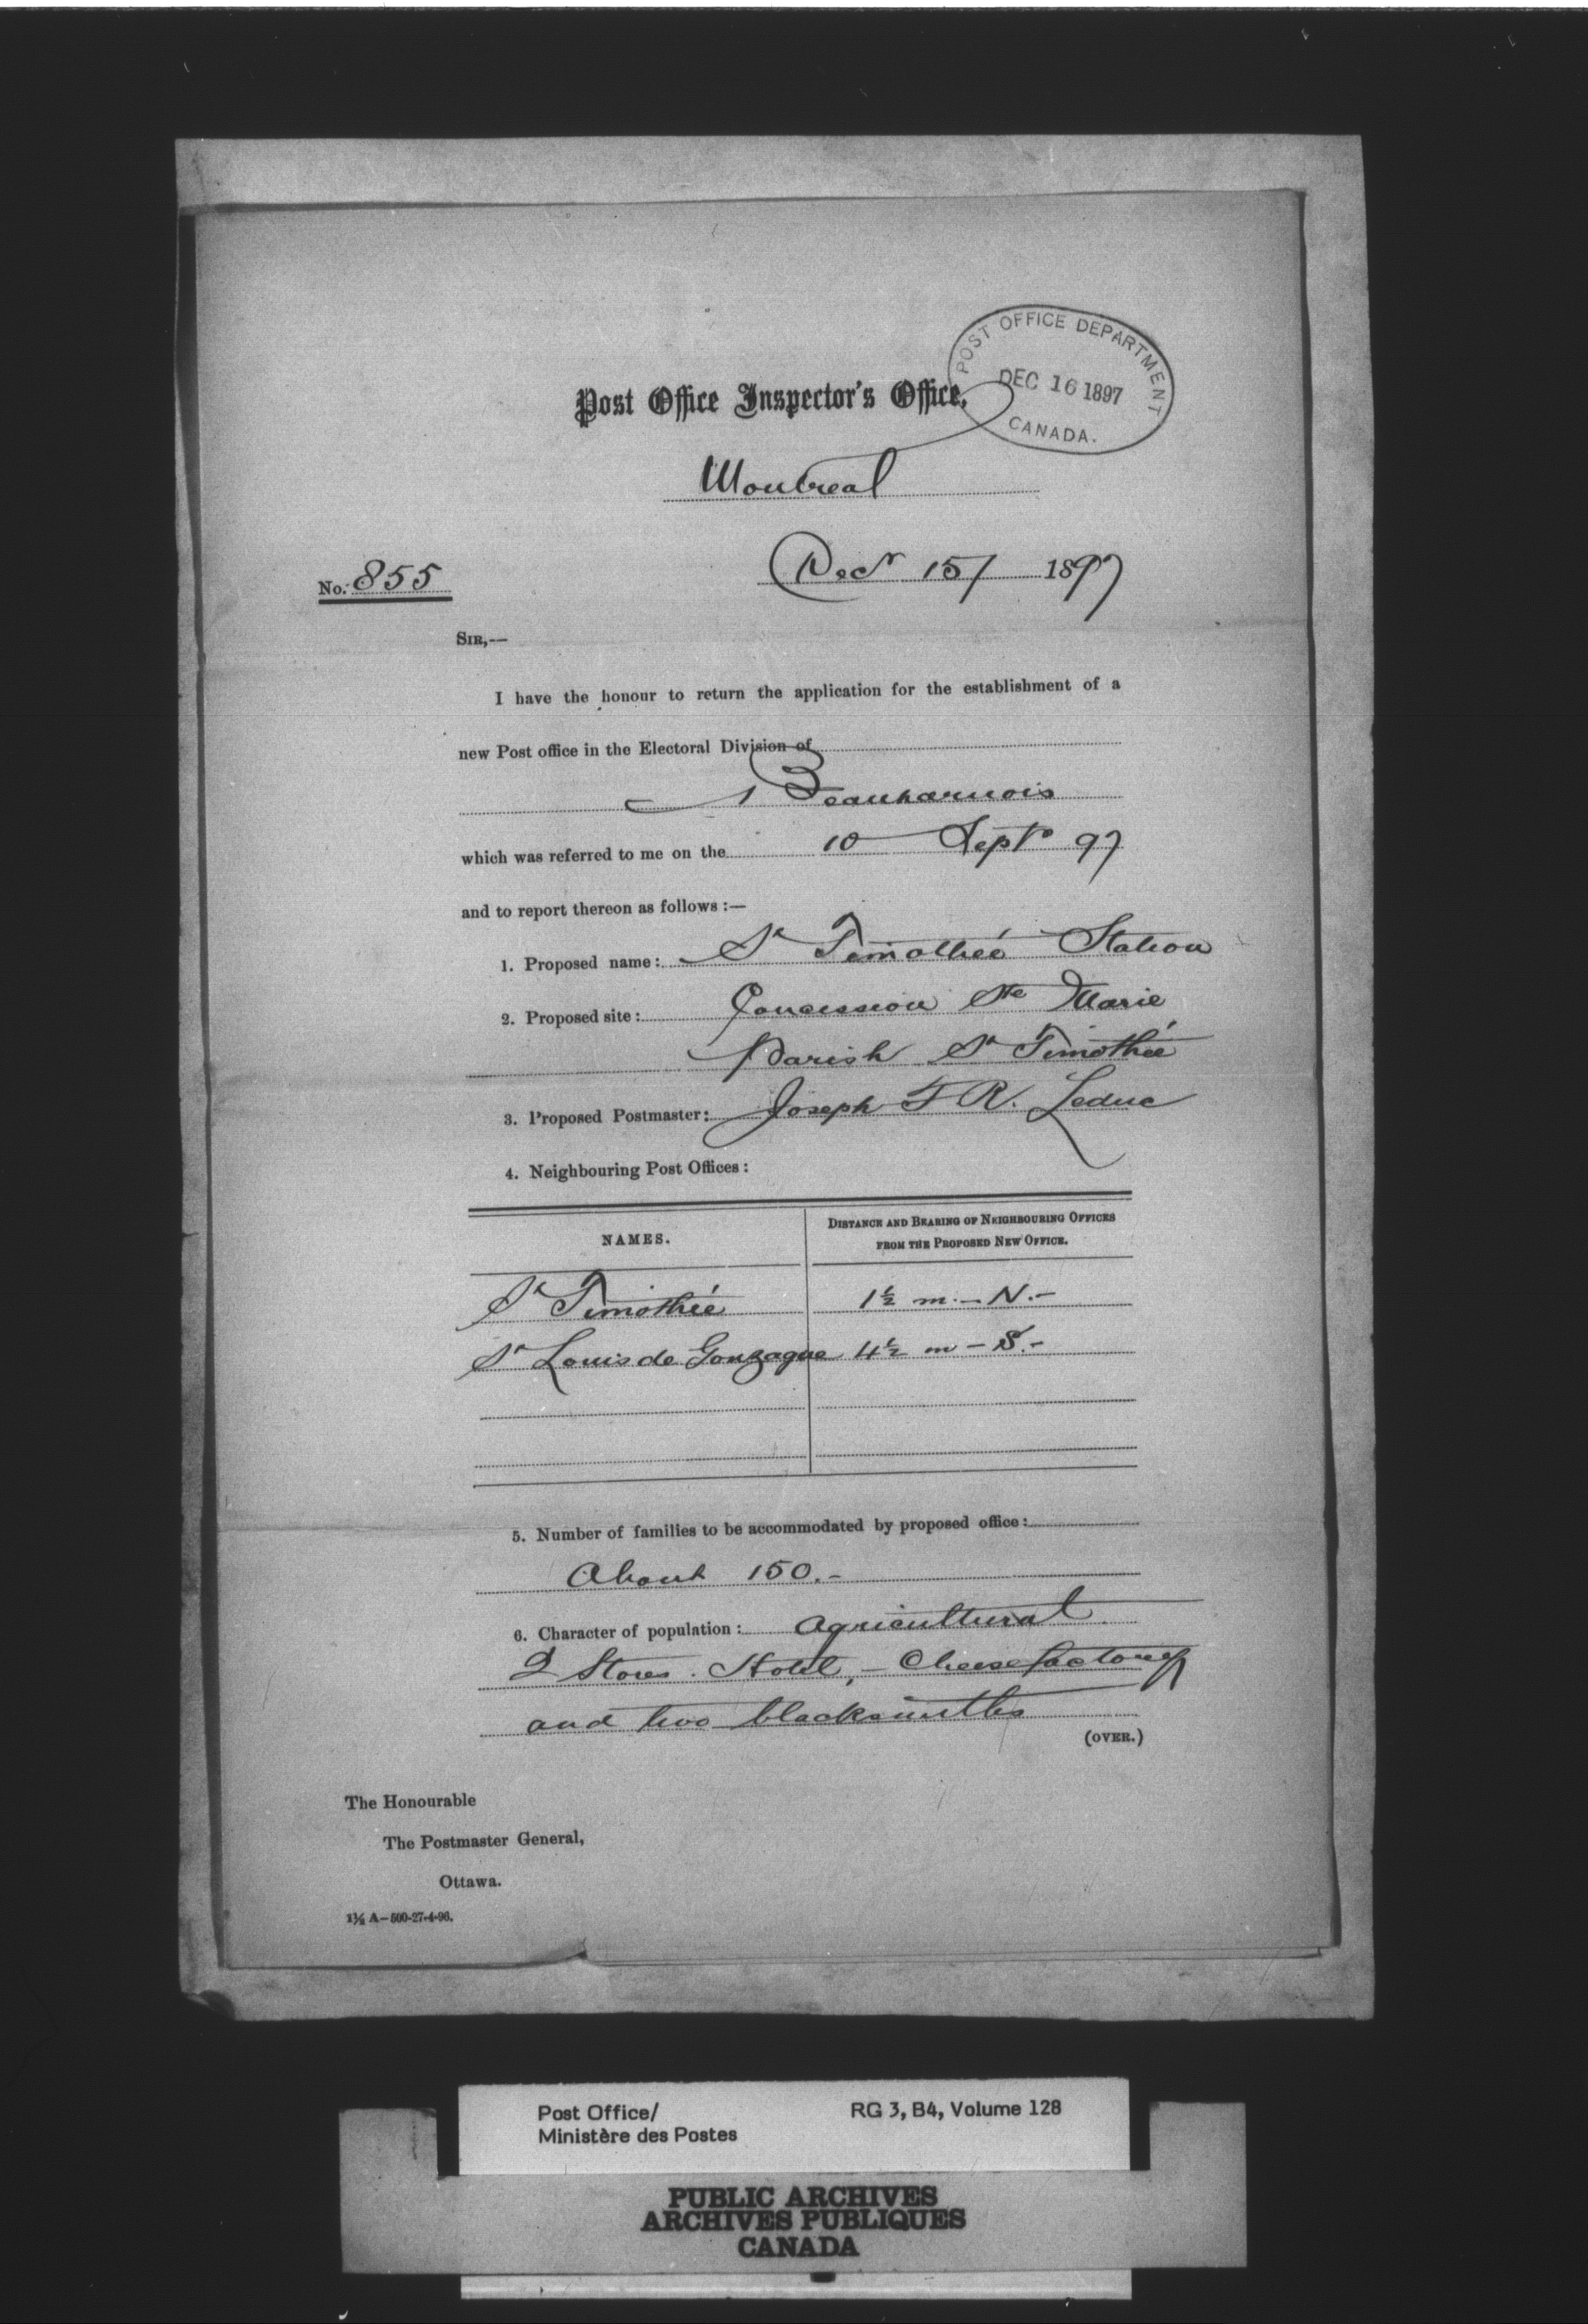 POST OFFICE DEPARTMENT
DEC 16 1897
CANADA.
Post Office Inspector's Office,
Montreal
No. 855
Decr 15/ 1897
SIR,—
I have the honour to return the application for the establishment of a
new Post office in the Electoral Division of
Beauharnois
which was referred to me on the 10 Sept 97
and to report thereon as follows :—
1. Proposed name: St Timothée Station
2. Proposed site: Concession Ste Marie
Parish St Timothée
3. Proposed Postmaster: Joseph F R. Leduc
4. Neighbouring Post Offices :
NAMES.
DISTANCE AND BEARING OF NEIGHBOURING OFFICES
FROM THE PROPOSED NEW OFFICE.
St Timothée 1½ m. – N. –
St Louis de Gonzague 4½ m – S. –
5. Number of families to be accommodated by proposed office:
About 150. –
6. Character of population: Agricultural
2 Stores. Hotel, – Cheese factory
and two blacksmiths
(OVER.)
The Honourable
The Postmaster General,
Ottawa.
1½ A—500-27-4-96.
Post Office/ RG 3, B4, Volume 128
Ministère des Postes
PUBLIC ARCHIVES
ARCHIVES PUBLIQUES
CANADA